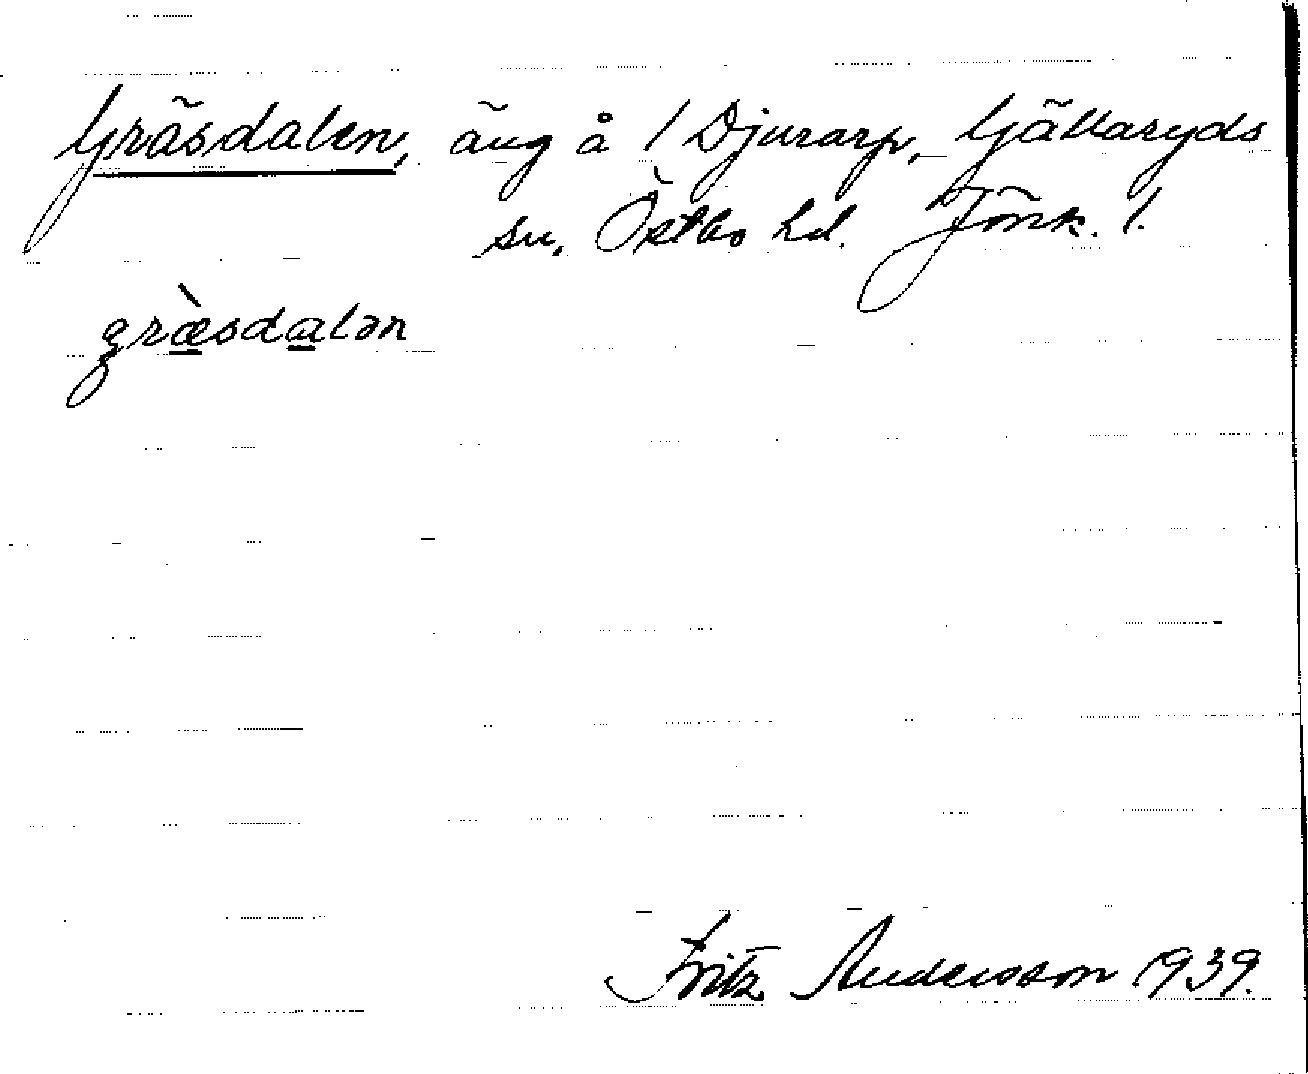 Gräsdalen, äng å 1 Djurarp, Gällaryds
sn, Östbo hd. Jönk. l.
græ̀sdalən
Fritz Andersson 1939.